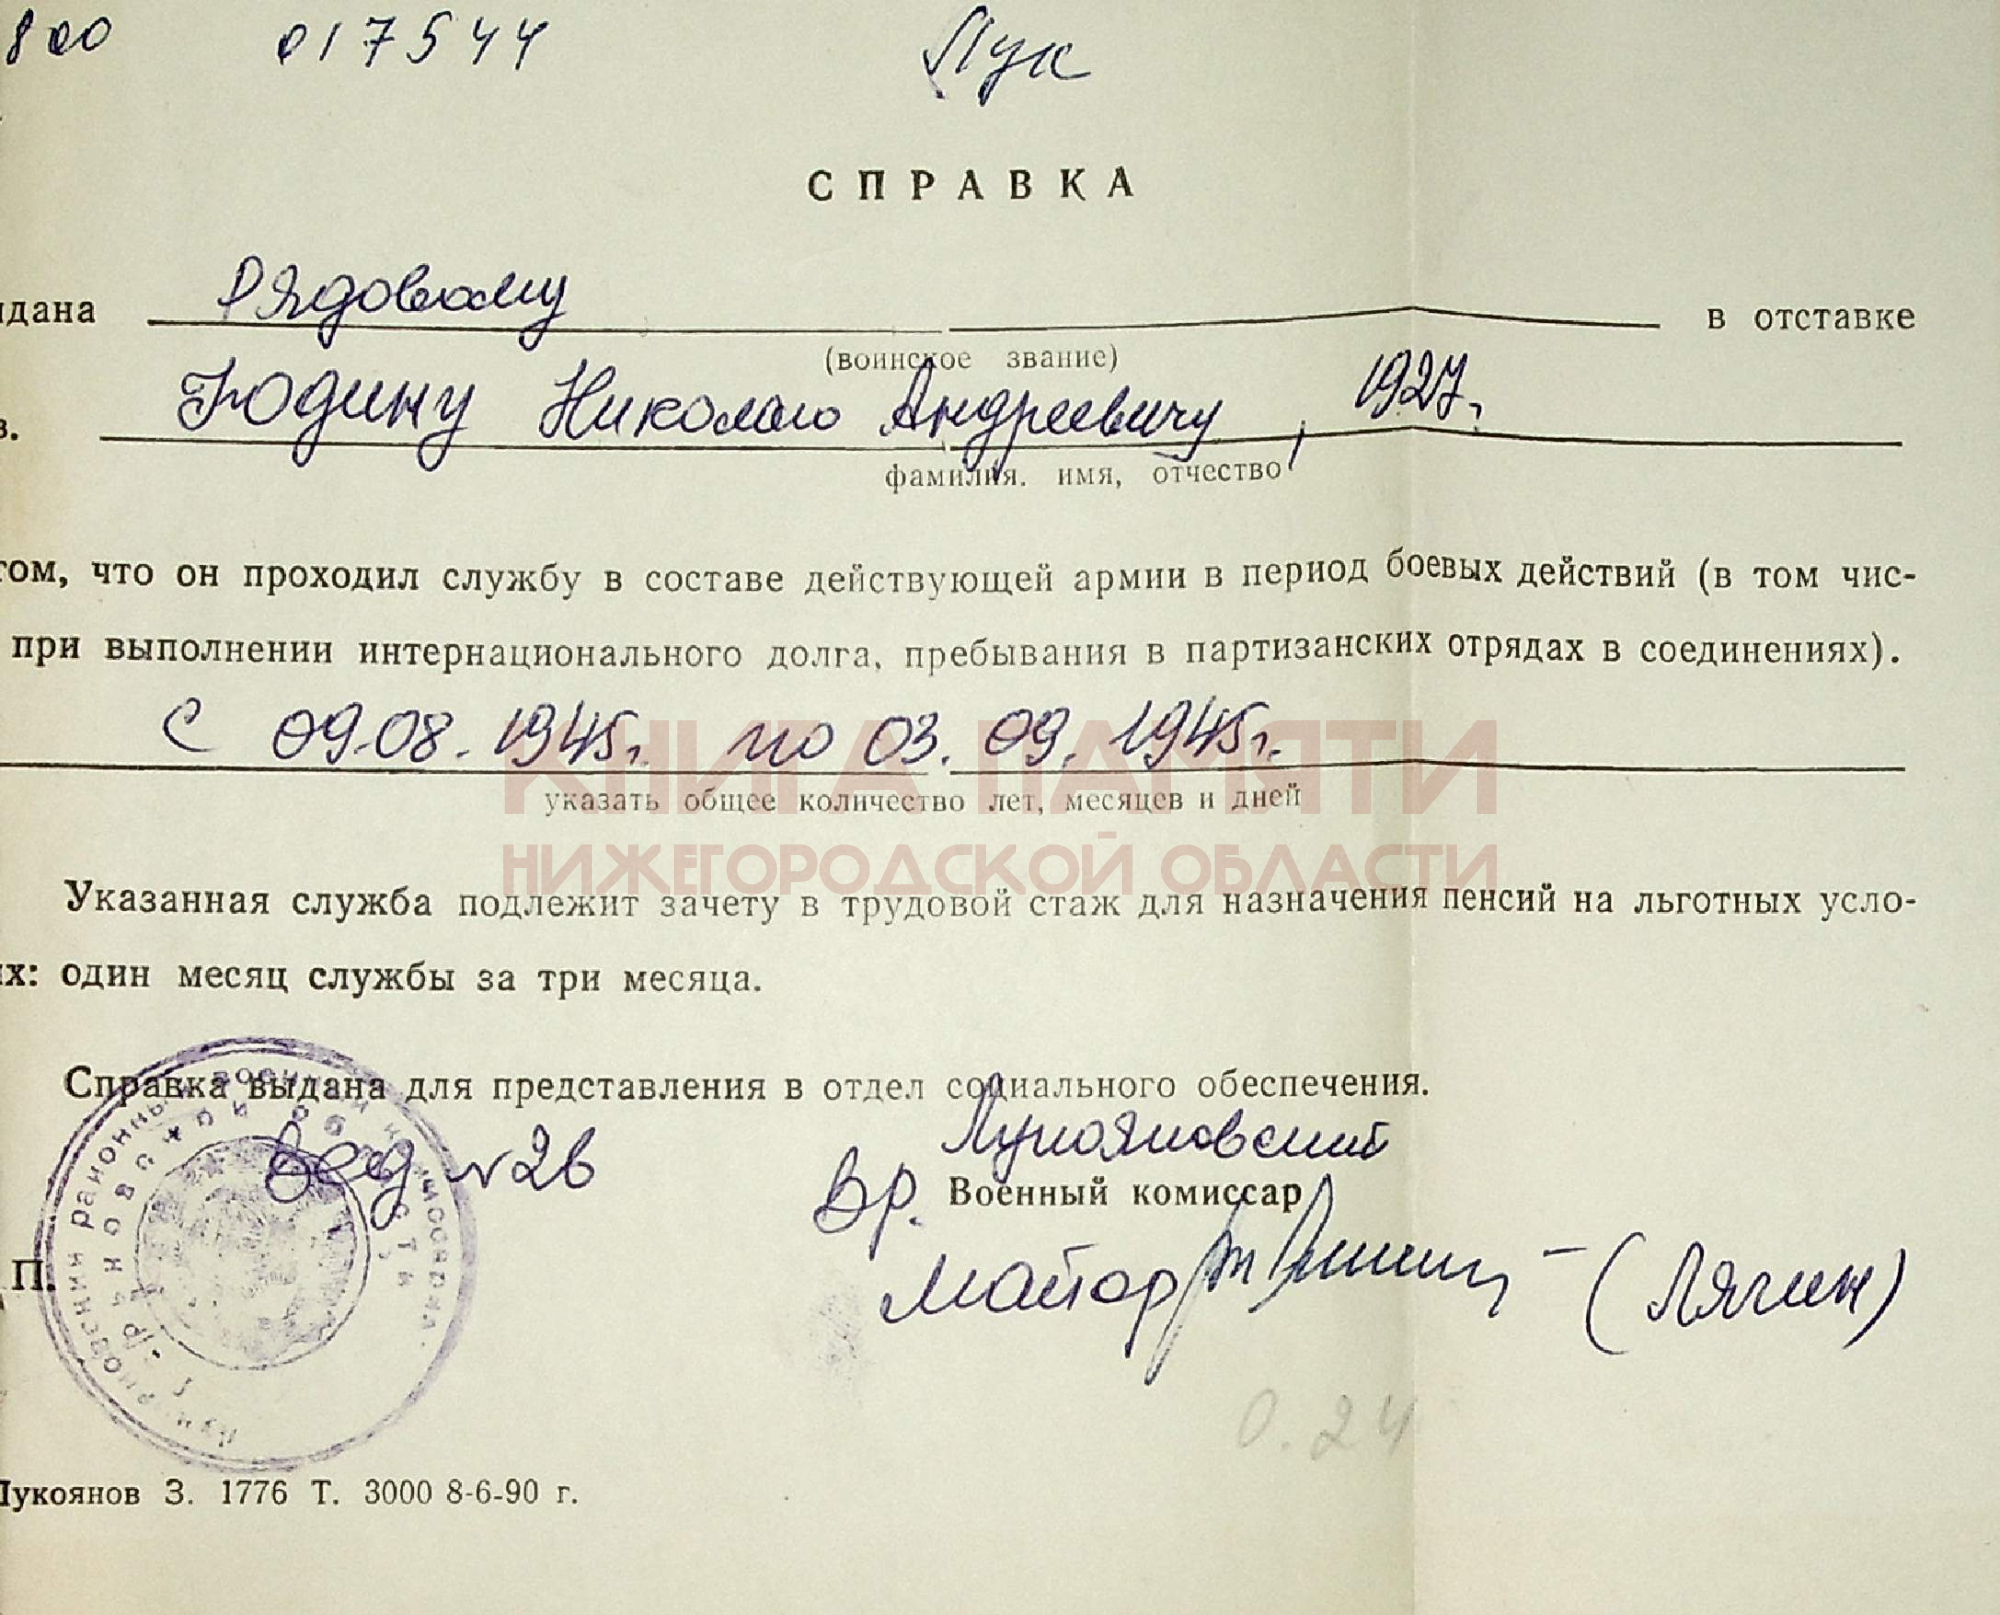 800 017544 Лук
СПРАВКА
дана Рядовому в отставке
(воинское звание)
в. Юдину Николаю Андреевичу, 1927г.
фамилия. имя, отчество
том, что он проходил службу в составе действующей армии в период боевых действий (в том чис-
при выполнении интернационального долга, пребывания в партизанских отрядах в соединениях).
с 09.08.1945г. по 03.09.1945г.
КНИГА ПАМЯТИ
указать общее количество лет, месяцев и дней
НИЖЕГОРОДСКОЙ ОБЛАСТИ
Указанная служба подлежит зачету в трудовой стаж для назначения пенсий на льготных усло-
их: один месяц службы за три месяца.
Справка выдана для представления в отдел социального обеспечения.
Лукояновский
Вед №26
Вр. Военный комиссар
П.
майор (Лягин)
0.24
Лукоянов З. 1776 Т. 3000 8-6-90 г.